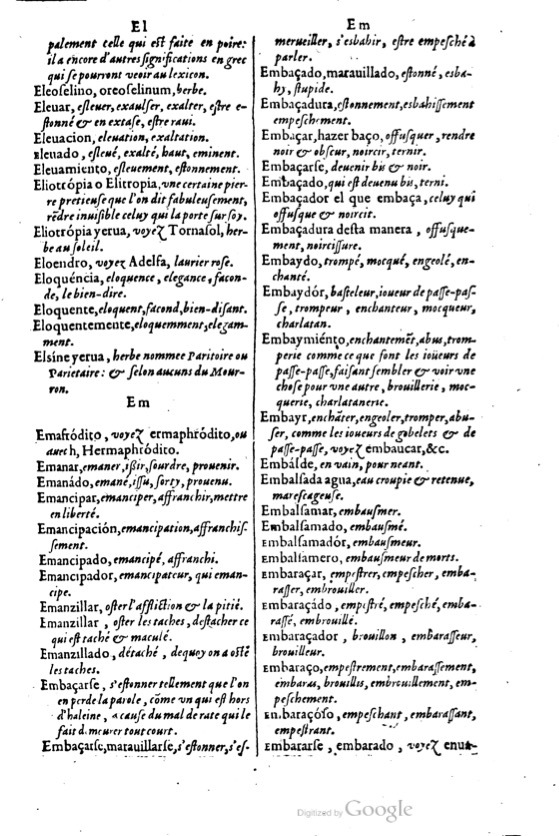 El
palement celle qui est faite en poire:
il a encore d'autres significations en grec
qui se pourront veoir au lexicon.
Eleoselino, oreoselinum, herbe.
Eleuar, esleuer, exaulser, exalter, estre e-
stonné & en extase, estre raui.
Eleuacion, eleuation, exaltation.
Eleuado, esleué, exalté, haut, eminent.
Eleuamiento, esleuement, estonnement.
Eliotrópia o Elitropia, vne certaine pier-
re pretieuse que l'on dit fabuleusement,
rēdre inuisible celuy qui la porte sur soy.
Eliotrópia yerua, voyez Tornasol, her-
be au soleil.
Eloendro, voyez Adelfa, laurier rose.
Eloquéncia, eloquence, elegance, facon-
de, le bien-dire.
Eloquente, eloquent, facond, bien-disant.
Eloquentemente, eloquemment, elegam-
ment.
Elsíne yerua, herbe nommee Paritoire ou
Parietaire: & selon aucuns du Mour-
ron.
Em
Emafródito, voyez ermaphródito, ou
auec h, Hermaphródito.
Emanar, emaner, issir, sourdre, prouenir.
Emanádo, emané, issu, sorty, prouenu.
Emancipar, emanciper, affranchir, mettre
en liberté.
Emancipación, emancipation, affranchis-
sement.
Emancipado, emancipé, affranchi.
Emancipador, emancipateur, qui eman-
cipe.
Emanzillar, oster l'affliction & la pitié.
Emanzillar, oster les taches, destacher ce
qui est taché & maculé.
Emanzillado, détaché, dequoy on a osté
les taches.
Embaçarse, s'estonner tellement que l'on
en perde la parole, cōme vn qui est hors
d'haleine, a cause du mal de rate qui le
fait demeurer tout court.
Embaçarse, marauillarse, s'estonner, s'es-
Em
merueiller, s'esbahir, estre empesché à
parler.
Embaçado, marauillado, estonné, esba-
hy, stupide.
Embaçadura, estonnement, esbahissement
empeschement.
Embaçar, hazer baço, offusquer, rendre
noir & obscur, noircir, ternir.
Embaçarse, deuenir bis & noir.
Embaçado, qui est deuenu bis, terni.
Embaçador el que embaça, celuy qui
offusque & noircit.
Embaçadura desta manera, offusque-
ment, noircissure.
Embaydo, trompé, mocqué, engeolé, en-
chanté.
Embaydór, basteleur, ioueur de passe-pas-
se, trompeur, enchanteur, mocqueur,
charlatan.
Embaymiénto, enchantemēt, abus, trom-
perie comme ce que font les ioüeurs de
passe-passe, faisant sembler & voir vne
chose pour vne autre, brouillerie, moc-
querie, charlatanerie.
Embayr, enchāter, engeoler, tromper, abu-
ser, comme les ioueurs de gobelets & de
passe-passe, voyez embaucar, &c.
Embálde, en vain, pour neant.
Embalsada agua, eau croupie & retenue,
marescageuse.
Embalsamar, embausmer.
Embalsamado, embausmé.
Embalsamadór, embausmeur.
Embalsamero, embausmeur de morts.
Embaraçar, empestrer, empescher, emba-
rasser, embrouiller.
Embaraçádo, empestré, empesché, emba-
rassé, embrouillé.
Embaraçador, brouillon, embarasseur,
brouilleur.
Embaraço, empestrement, embarassement,
embaras, brouillis, embrouillement, em-
peschement.
Embaraçóso, empeschant, embarassant,
empestrant.
Embararse, embarado, voyez enua-
Digitized by Google